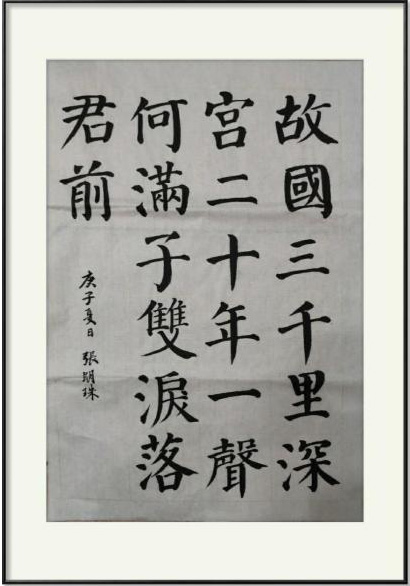 故國三千里深
宮二十年一聲
何滿子雙淚落
君前
庚子夏日 張明珠